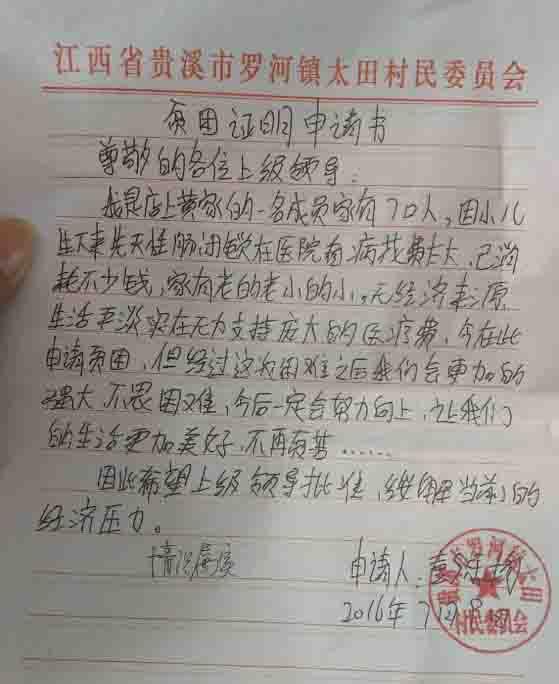 江西省贵溪市罗河镇太田村民委员会
贫困证明申请书
尊敬的各位上级领导:
我是店上黄家的一名成员家有70人,因小儿
生下来先天性肠闭锁在医院看病花费太大,已消
耗不少钱,家有老的老小的小,无经济来源
生活平淡实在无力支持庞大的医疗费,今在此
申请贫困,但经过这次困难之后我们会更加的
强大,不畏困难,今后一定会努力向上,让我们
的生活更加美好,不再贫苦......
因此希望上级领导批准,缓解当前的
经济压力。
情况属实
申请人:
2016年7月8日
罗河镇太田
村民委员会